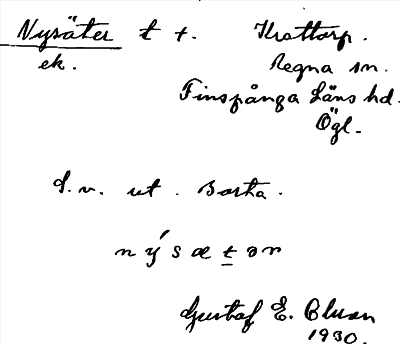 Nysäter t t. Krottorp.
ek. Regna sn.
Finspånga Läns hd.
Ögl.
d.v. ut. Borta.
nýsætər
Gustaf E. Bluan
1930.